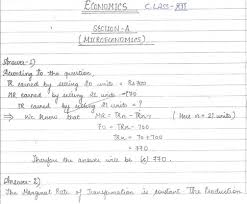 ECONOMICS CLASS-XII
SECTION-A
(MICROECONOMICS)
Answer-1)
According to the question,
TR earned by selling 20 units = Rs 700
MR earned by selling 21 units = 70
TR earned by selling 21 units = ?
⇒ We know that MR = TRn - TRn-1 (Here n = 21 units)
70 = TRn - 700
TRn = 70 + 700
TRn = 770
Therefore the answer will be 770.
Answer-2)
The Marginal Rate of Transformation is constant. The Production